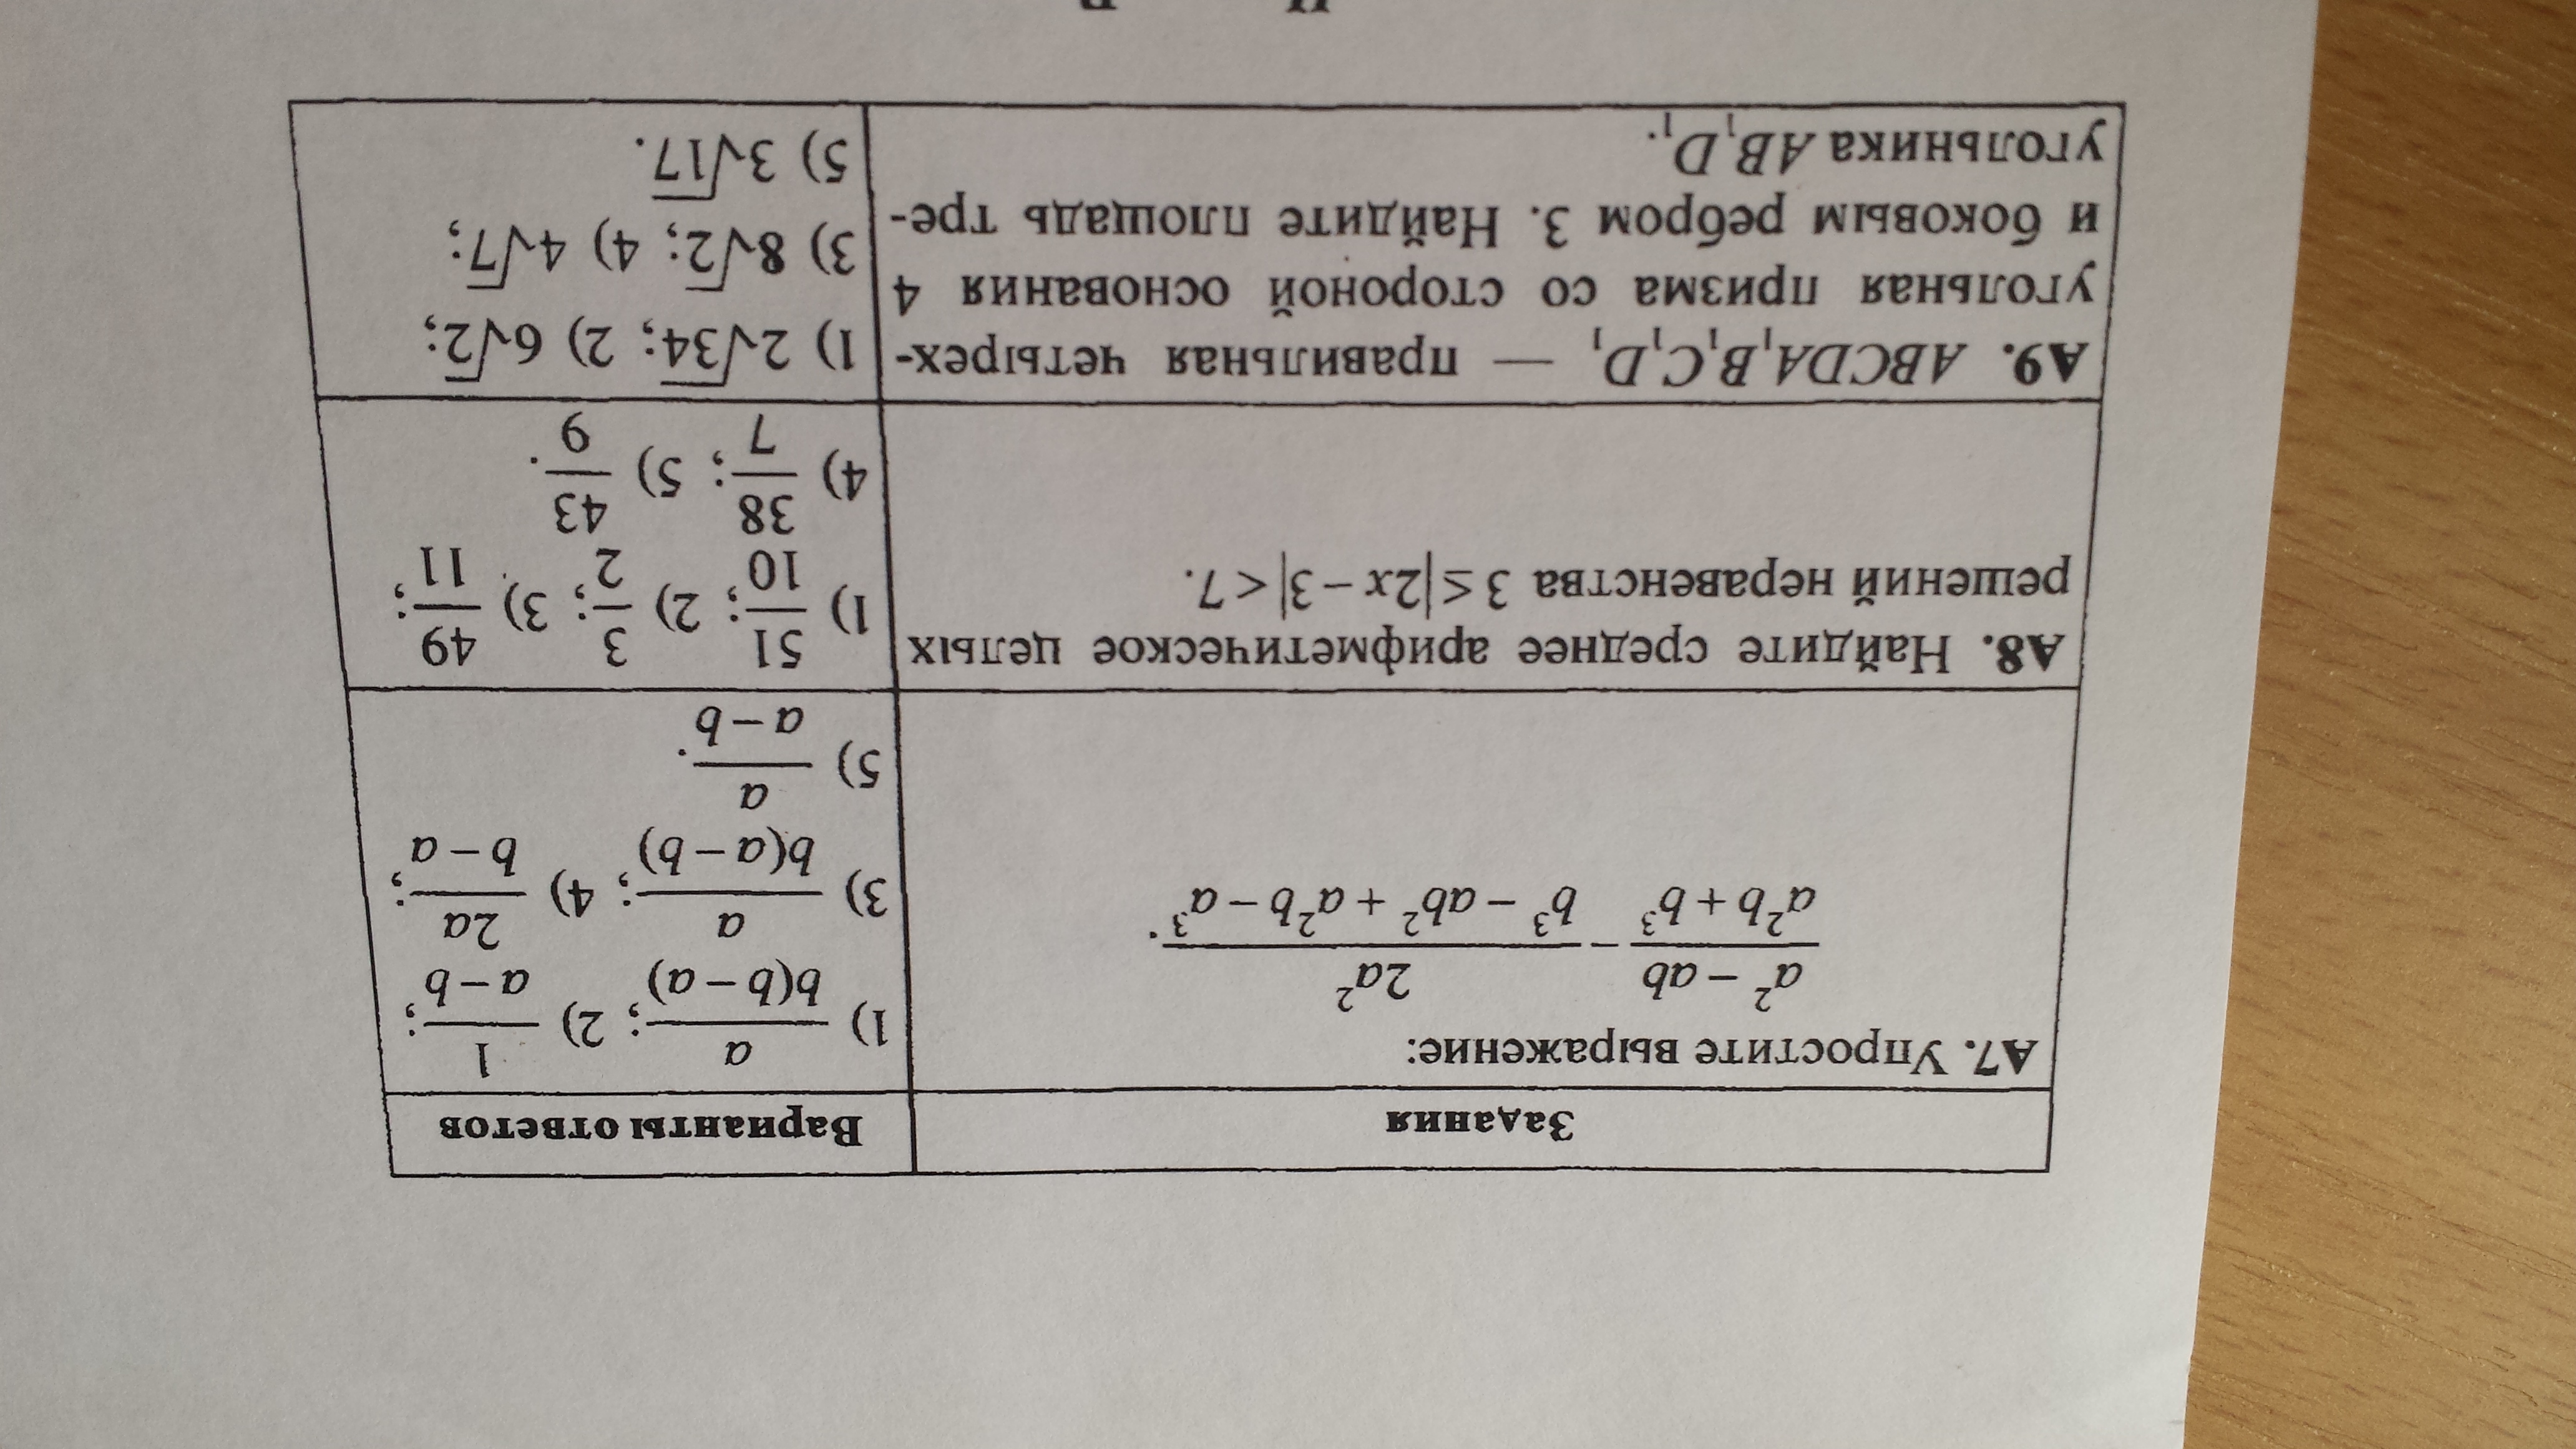 Задания
Варианты ответов
А7. Упростите выражение:
(a² − ab)/(a²b + b³) − 2a²/(b³ − ab² + a²b − a³).
1) a/(b(b − a)); 2) 1/(a − b);
3) a/(b(a − b)); 4) 2a/(b − a);
5) a/(a − b).
А8. Найдите среднее арифметическое целых
решений неравенства 3 ≤ |2x − 3| < 7.
1) 51/10; 2) 3/2; 3) 49/11;
4) 38/7; 5) 43/9.
А9. ABCDA₁B₁C₁D₁ — правильная четырех-
угольная призма со стороной основания 4
и боковым ребром 3. Найдите площадь тре-
угольника AB₁D₁.
1) 2√34; 2) 6√2;
3) 8√2; 4) 4√7;
5) 3√17.